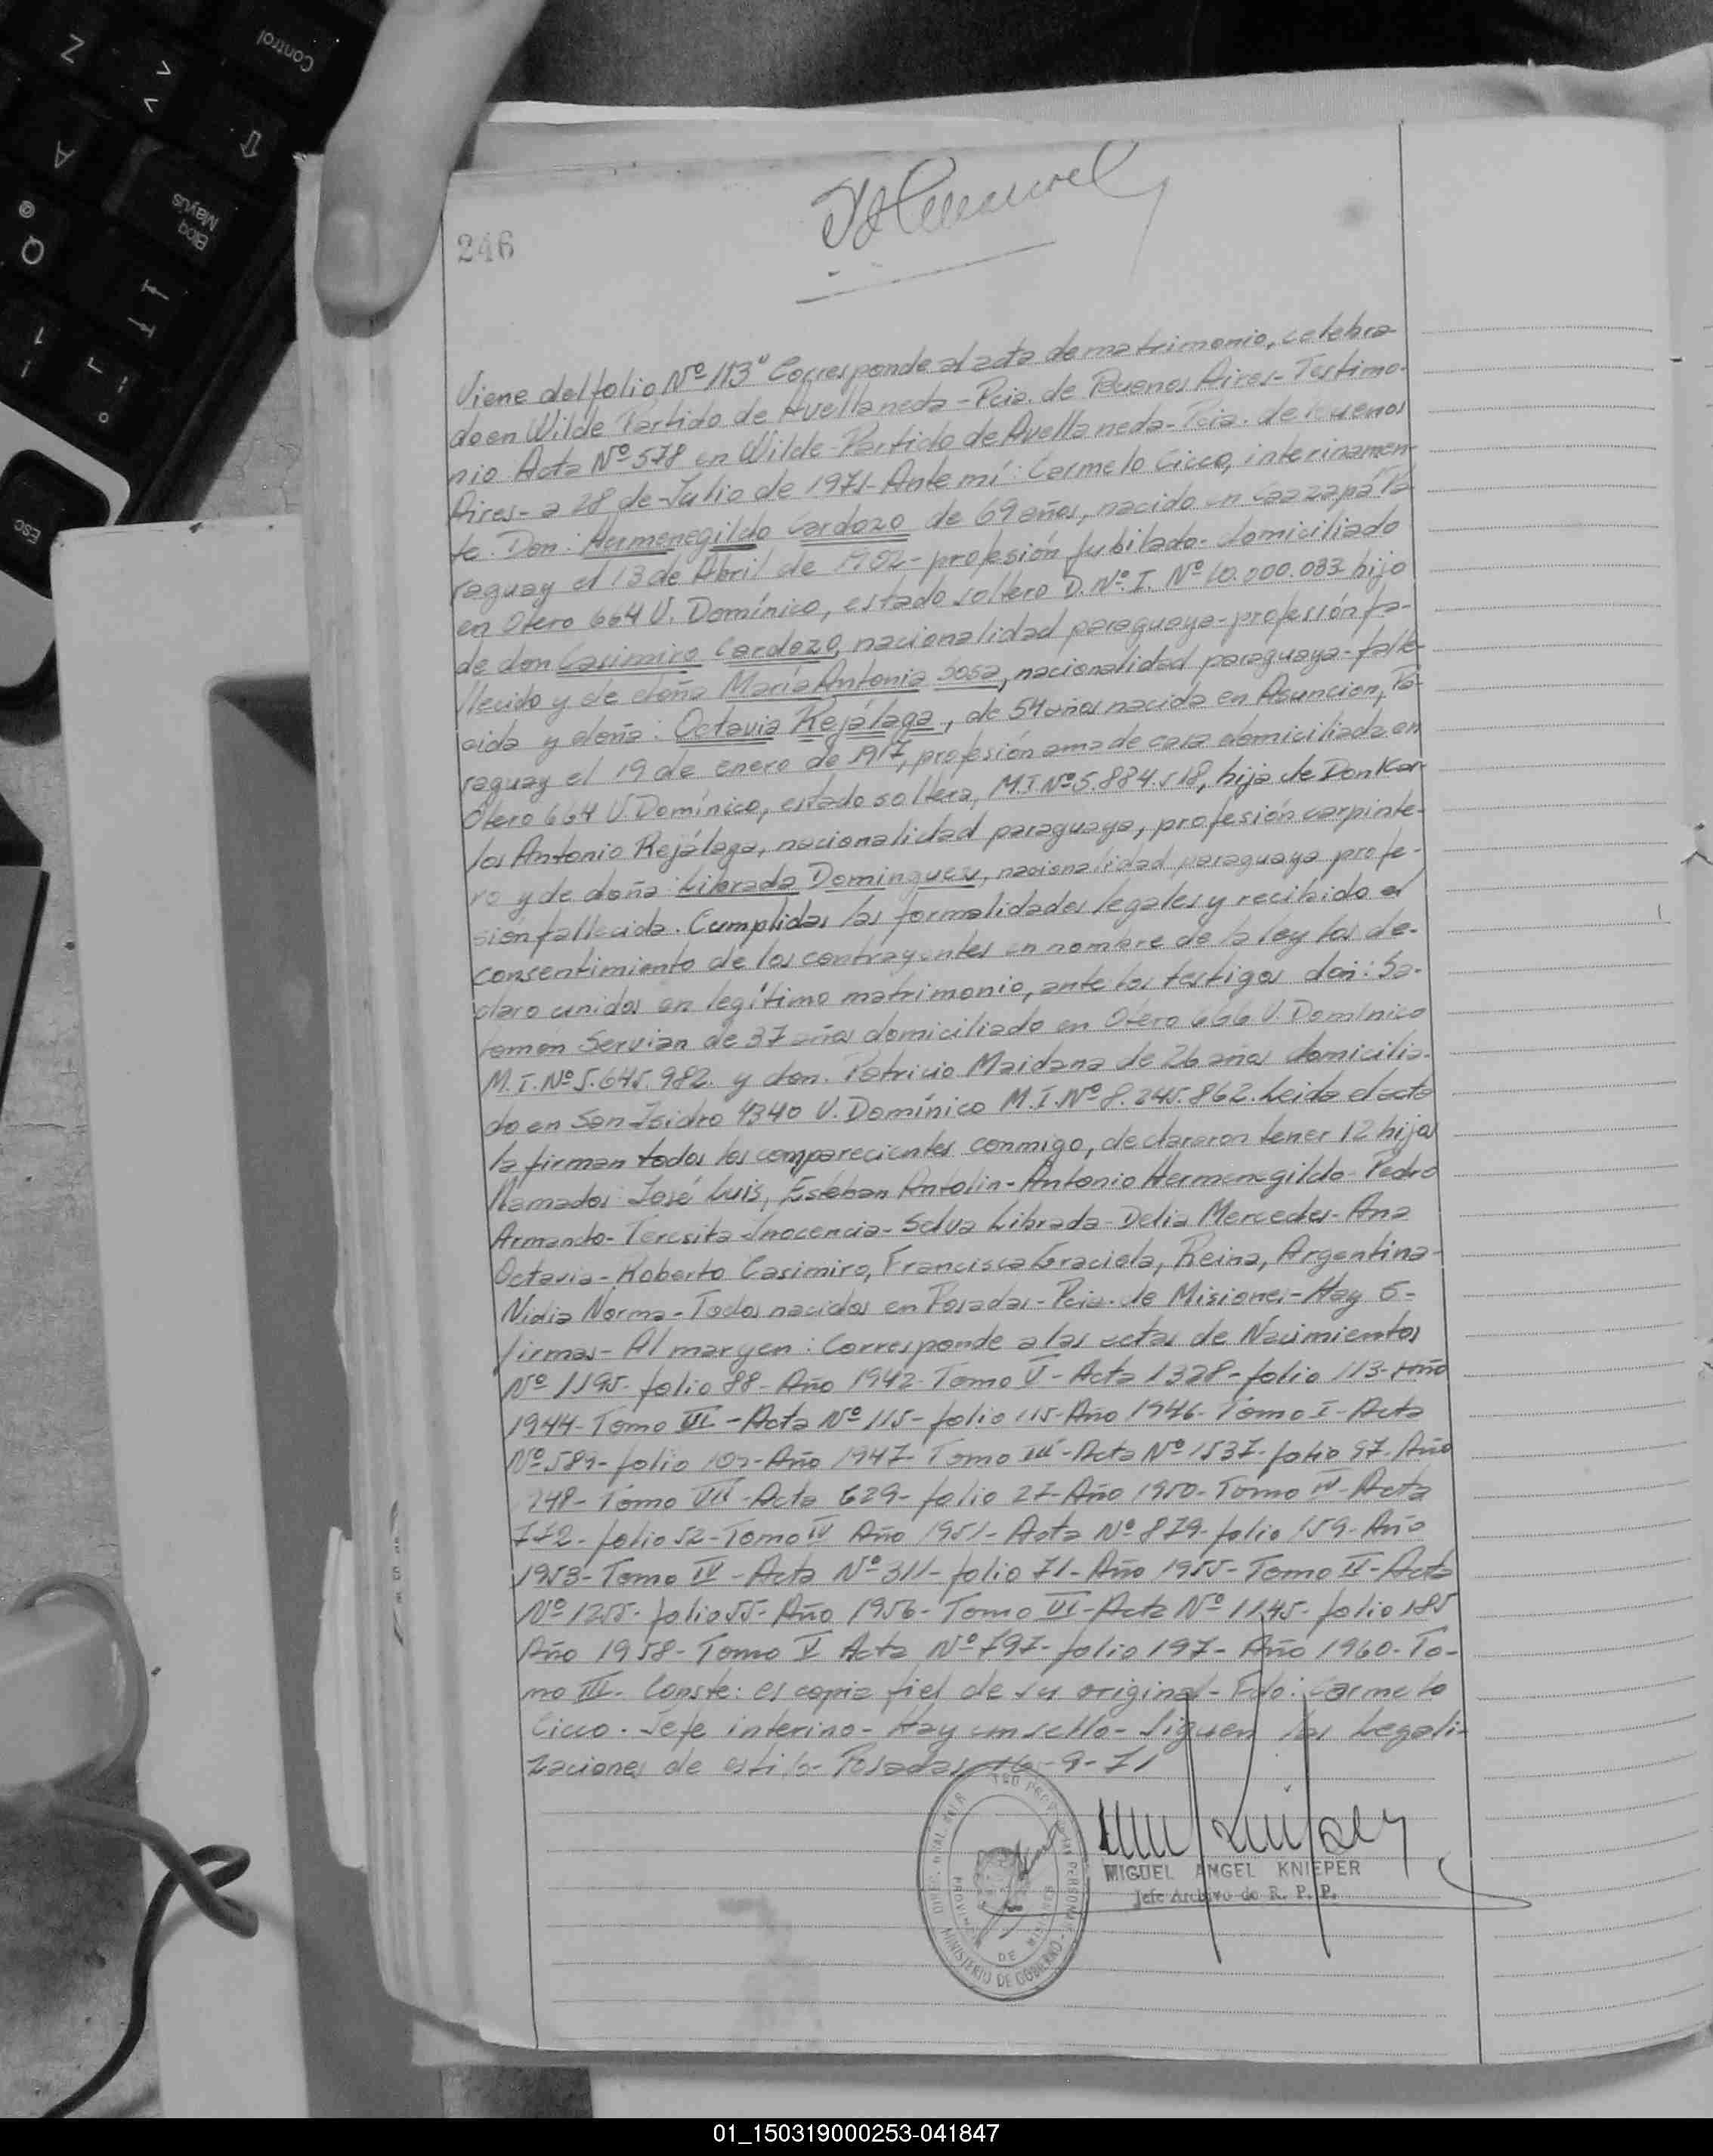 246
Viene del folio Nº 113º Corresponde al acta de matrimonio, celebra-
do en Wilde Partido de Avellaneda - Pcia. de Buenos Aires - Testimo-
nio Acta Nº 578 en Wilde - Partido de Avellaneda - Pcia. de Buenos
Aires - a 28 de Julio de 1971 - Ante mí: Carmelo Cicco, interinamen-
te. Don: Hermenegildo Cardozo de 69 años, nacido en Caazapá Pa-
raguay el 13 de Abril de 1902 - profesión Jubilado - domiciliado
en Otero 664 V. Domínico, estado soltero D.Nº.I. Nº 10.000.083 hijo
de don Casimiro Cardozo, nacionalidad paraguaya - profesión fa-
llecido y de doña María Antonia Sosa, nacionalidad paraguaya - falle-
cida y doña: Octavia Rejálaga, de 54 años nacida en Asuncion, Pa-
raguay el 19 de enero de 1917, profesión ama de casa domiciliada en
Otero 664 V. Domínico, estado soltera, M.I. Nº 5.884.518, hija de Don Kar-
los Antonio Rejálaga, nacionalidad paraguaya, profesión carpinte-
ro y de doña: Librada Dominguez, nacionalidad paraguaya profe-
sión fallecida. Cumplidas las formalidades legales y recibido el
consentimiento de los contrayentes en nombre de la ley los de-
claro unidos en legítimo matrimonio, ante los testigos don: Sa-
lomón Servian de 37 años domiciliado en Otero 666 V. Domínico
M.I. Nº 5.645.982. y don. Patricio Maidana de 26 años domicilia-
do en San Isidro 4340 V. Domínico M.I. Nº 8.245.862. Leida el acta
la firman todos los comparecientes conmigo, declararon tener 12 hijos
llamados: José Luis, Esteban Antolin - Antonio Hermenegildo - Pedro
Armando - Teresita Inocencia - Selva Librada - Delia Mercedes - Ana
Octavia - Roberto Casimiro, Francisca Graciela, Reina, Argentina -
Nidia Norma - Todos nacidos en Posadas - Pcia. de Misiones - Hay 6 -
firmas - Al margen: Corresponde a las actas de Nacimientos
Nº 1195 - folio 88 - Año 1942 - Tomo V - Acta 1328 - folio 113 - Año
1944 - Tomo VII - Acta Nº 115 - folio 115 - Año 1946 - Tomo I - Acta
Nº 589 - folio 109 - Año 1947 - Tomo III - Acta Nº 1537 - folio 97 - Año
948 - Tomo VIII - Acta 629 - folio 27 - Año 1950 - Tomo IV - Acta
772 - folio 52 - Tomo IV Año 1951 - Acta Nº 879 - folio 159 - Año
1953 - Tomo IV - Acta Nº 311 - folio 71 - Año 1955 - Tomo II - Acta
Nº 1255 - folio 55 - Año 1956 - Tomo VI - Acta Nº 1145 - folio 185
Año 1958 - Tomo V Acta Nº 797 - folio 197 - Año 1960 - To-
mo III. Conste: es copia fiel de su original - Fdo: Carmelo
Cicco - Jefe interino - Hay un sello - Siguen las Legali-
zaciones de estilo - Posadas 16 - 9 - 71
MIGUEL ANGEL KNIEPER
Jefe Archivo de R. P. P.
MINISTERIO DE GOBIERNO
PROVINCIA DE MISIONES
Control
Bloq
Mayús
Esc
Z
A
Q
@
01_150319000253-041847